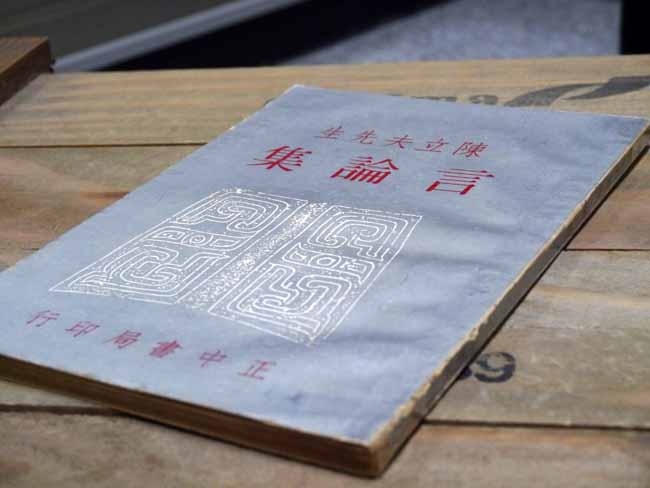 陳立夫先生
言論集
正中書局印行